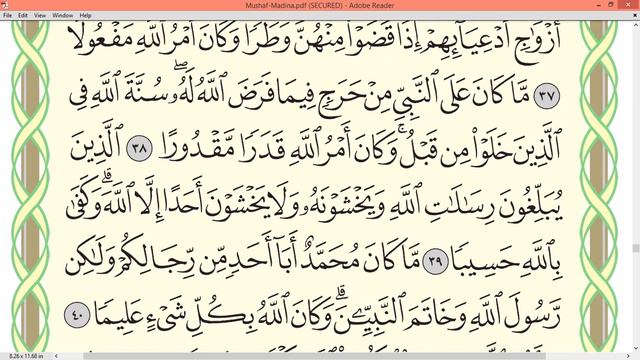 Mushaf-Madina.pdf (SECURED) - Adobe Reader
File Edit View Window Help
أَزْوَٰجِ أَدْعِيَآئِهِمْ إِذَا قَضَوْا۟ مِنْهُنَّ وَطَرًا وَكَانَ أَمْرُ ٱللَّهِ مَفْعُولًا
٣٧ مَّا كَانَ عَلَى ٱلنَّبِىِّ مِنْ حَرَجٍ فِيمَا فَرَضَ ٱللَّهُ لَهُۥ ۖ سُنَّةَ ٱللَّهِ فِى
ٱلَّذِينَ خَلَوْا۟ مِن قَبْلُ ۚ وَكَانَ أَمْرُ ٱللَّهِ قَدَرًا مَّقْدُورًا ٣٨ ٱلَّذِينَ
يُبَلِّغُونَ رِسَٰلَٰتِ ٱللَّهِ وَيَخْشَوْنَهُۥ وَلَا يَخْشَوْنَ أَحَدًا إِلَّا ٱللَّهَ ۗ وَكَفَىٰ
بِٱللَّهِ حَسِيبًا ٣٩ مَّا كَانَ مُحَمَّدٌ أَبَآ أَحَدٍ مِّن رِّجَالِكُمْ وَلَٰكِن
رَّسُولَ ٱللَّهِ وَخَاتَمَ ٱلنَّبِيِّۦنَ ۗ وَكَانَ ٱللَّهُ بِكُلِّ شَىْءٍ عَلِيمًا ٤٠
8.26 x 11.68 in